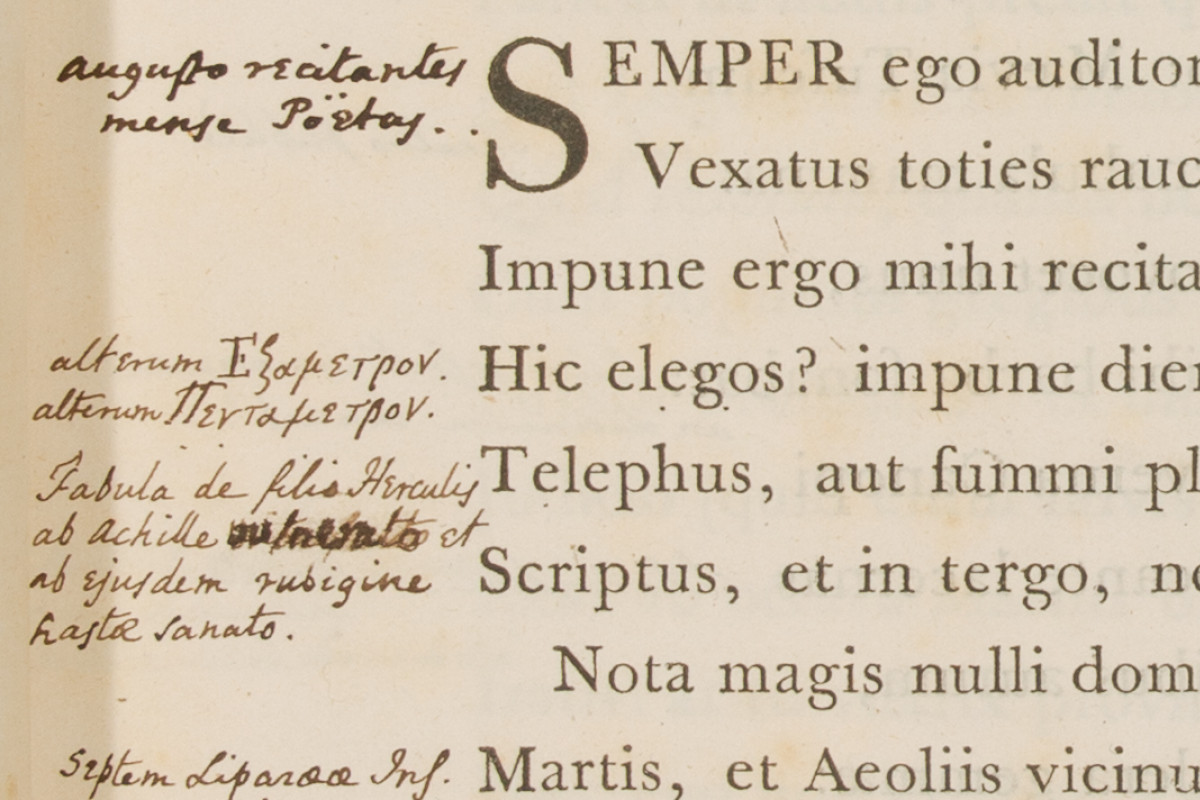 augusto recitantes
mense Poëtas. . .
SEMPER ego auditor
Vexatus toties rauc
Impune ergo mihi recita
alterum Εξαμετρον.
alterum Πενταμετρον.
Hic elegos? impune dier
Fabula de filio Herculis
ab Achille vulnerato et
ab ejusdem rubigine
hastæ sanato.
Telephus, aut ſummi pl
Scriptus, et in tergo, ne
Nota magis nulli dom
septem Liparææ Inſ.
Martis, et Aeoliis vicinu